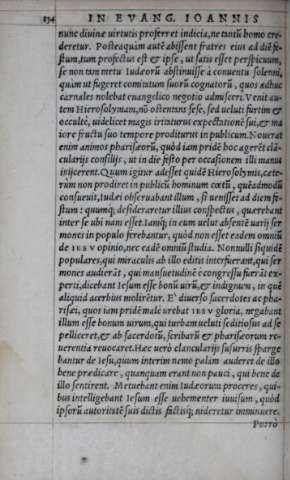 134 IN EVANG. IOANNIS
nunc diuinæ uirtutis proferret indicia, ne tantũ homo cre-
deretur. Posteaquàm autẽ abijssent fratres eius ad diẽ fe-
stum, tum profectus est & ipse, ut satis esset perspicuum,
se non tum metu Iudæorũ abstinuisse à conuentu solenni,
quàm ut fugeret comitatum suorũ cognatorũ, quos adhuc
carnales nolebat euangelico negotio admisceri. Venit au-
tem Hierosolymam, nõ ostentans sese, sed ueluti furtim &
occultè, uidelicet magis irritaturus expectationẽ sui, & ma
iore fructu suo tempore proditurus in publicum. Nouerat
enim animos pharisæorũ, quòd iam pridẽ hoc agerẽt clã-
cularijs consilijs, ut in die festo per occasionem illi manus
inijcerent. Quum igitur adesset quidẽ Hierosolymis, cæte-
rùm non prodiret in publicũ hominum cœtũ, quẽadmodũ
consueuit, Iudæi obseruabant illum, si uenisset ad diem fe-
stum: quumq́; desideraretur illius conspectus, quærebant
inter se ubi nam esset. Iamq́; in eum uelut absentẽ uarij ser
mones in populo ferebantur, quòd non esset eadem omniũ
de IESV opinio, nec eadẽ omniũ studia. Nonnulli siquidẽ
populares, qui miraculis ab illo editis interfuerant, qui ser
mones audierãt, qui mansuetudinẽ è congressu fuerãt ex-
perti, dicebant Iesum esse bonũ uirũ, & indignum, in quẽ
aliquid acerbius molirẽtur. E' diuerso sacerdotes ac pha-
risæi, quos iam pridẽ malè urebat IESV gloria, negabant
illum esse bonum uirum, qui turbam ueluti seditiosus ad se
pelliceret, & ab sacerdotũ, scribarũ & pharisæorum re-
uerentia reuocaret. Hæc uerò clancularijs susurris sparge
bantur de Iesu, quum interim nemo palàm auderet de illo
bene prædicare, quanquam erant non pauci, qui bene de
illo sentirent. Metuebant enim Iudæorum proceres, qui-
bus intelligebant Iesum esse uehementer inuisum, quòd
ipsorũ autoritatẽ suis dictis factisq́; uideretur imminuere.
Porrò